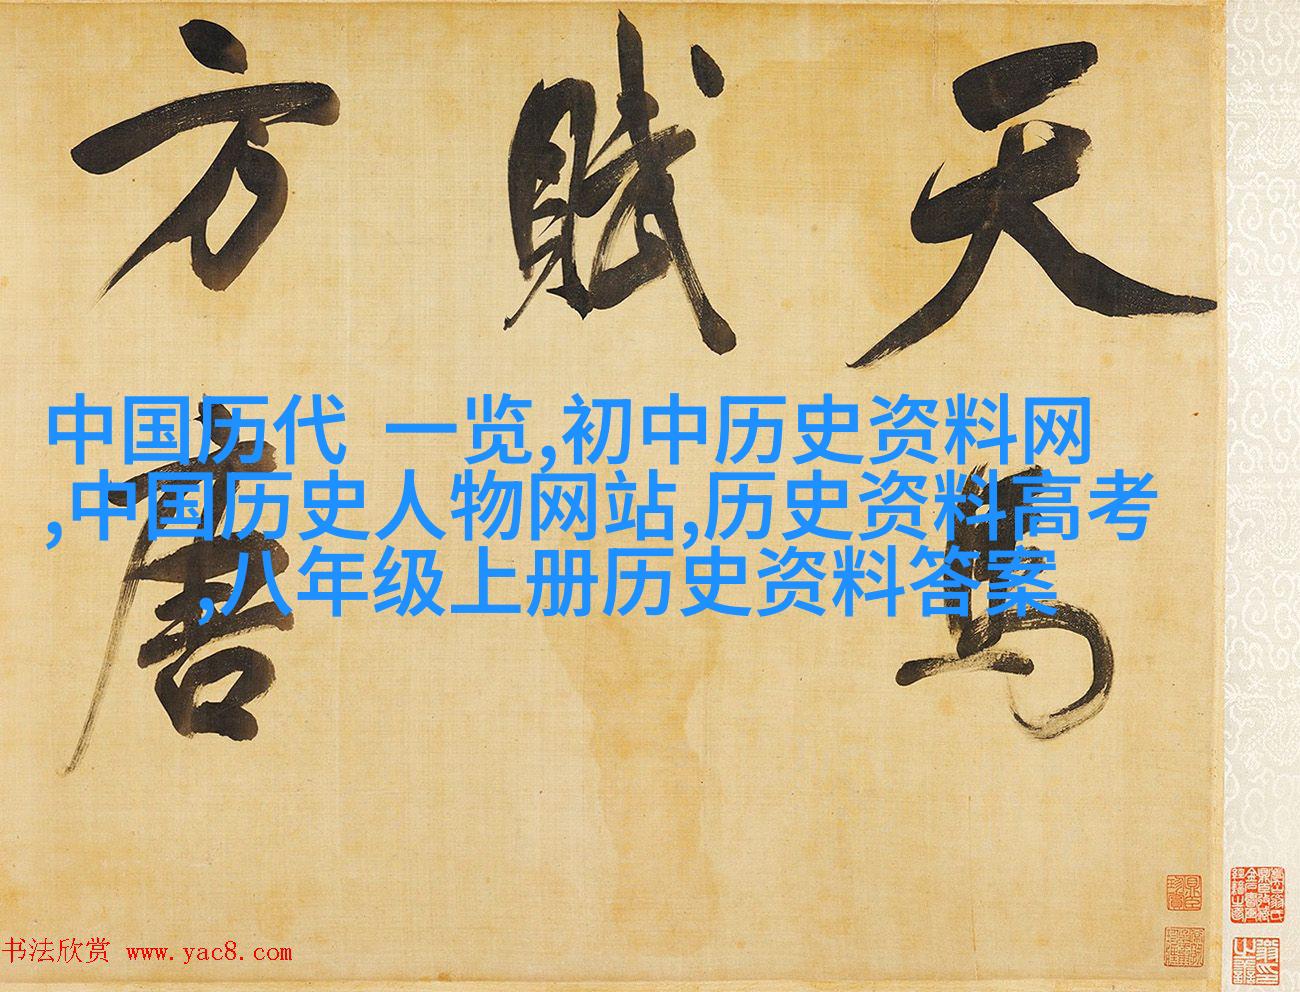 天馬
賦
方唐
中国历代 一览,初中历史资料网
,中国历史人物网站,历史资料高考
,八年级上册历史资料答案
书法欣赏 www.yac8.com